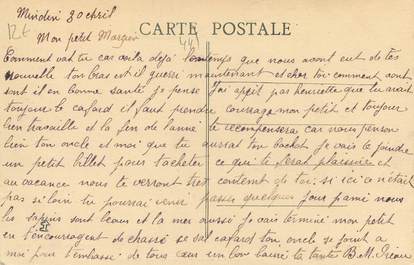 Mindin 30 Avril
CARTE POSTALE
12€
Mon petit
Comment vat tu car voila déjà lontemps que nous avont eut de tes
nouvelle ton bras est il guerri maintenant et chez toi comment vont
sont il en bonne santé je pense j'ai apprit par henriette que tu avait
toujour le cafard il faut prendre courage mon petit et toujour
bien travaille et la fin de l'anné te recompensera car nous penson
bien ton oncle et moi que tu aurrat ton bachot je vais te joindre
un petit billet pour t'acheter ce qui te ferat plaissire et
au vacance nous te verront tres content de toi, si ici n'était
pas si loin tu pourrai venir passer quelque jour parmi nous
les sappins sont beaux et la mer aussi je vais terminé mon petit
en t'encourragent de chassé se sal cafard ton oncle se joint a
moi pour t'embrasse de tous cœur un bon baisé ta tante B.M.